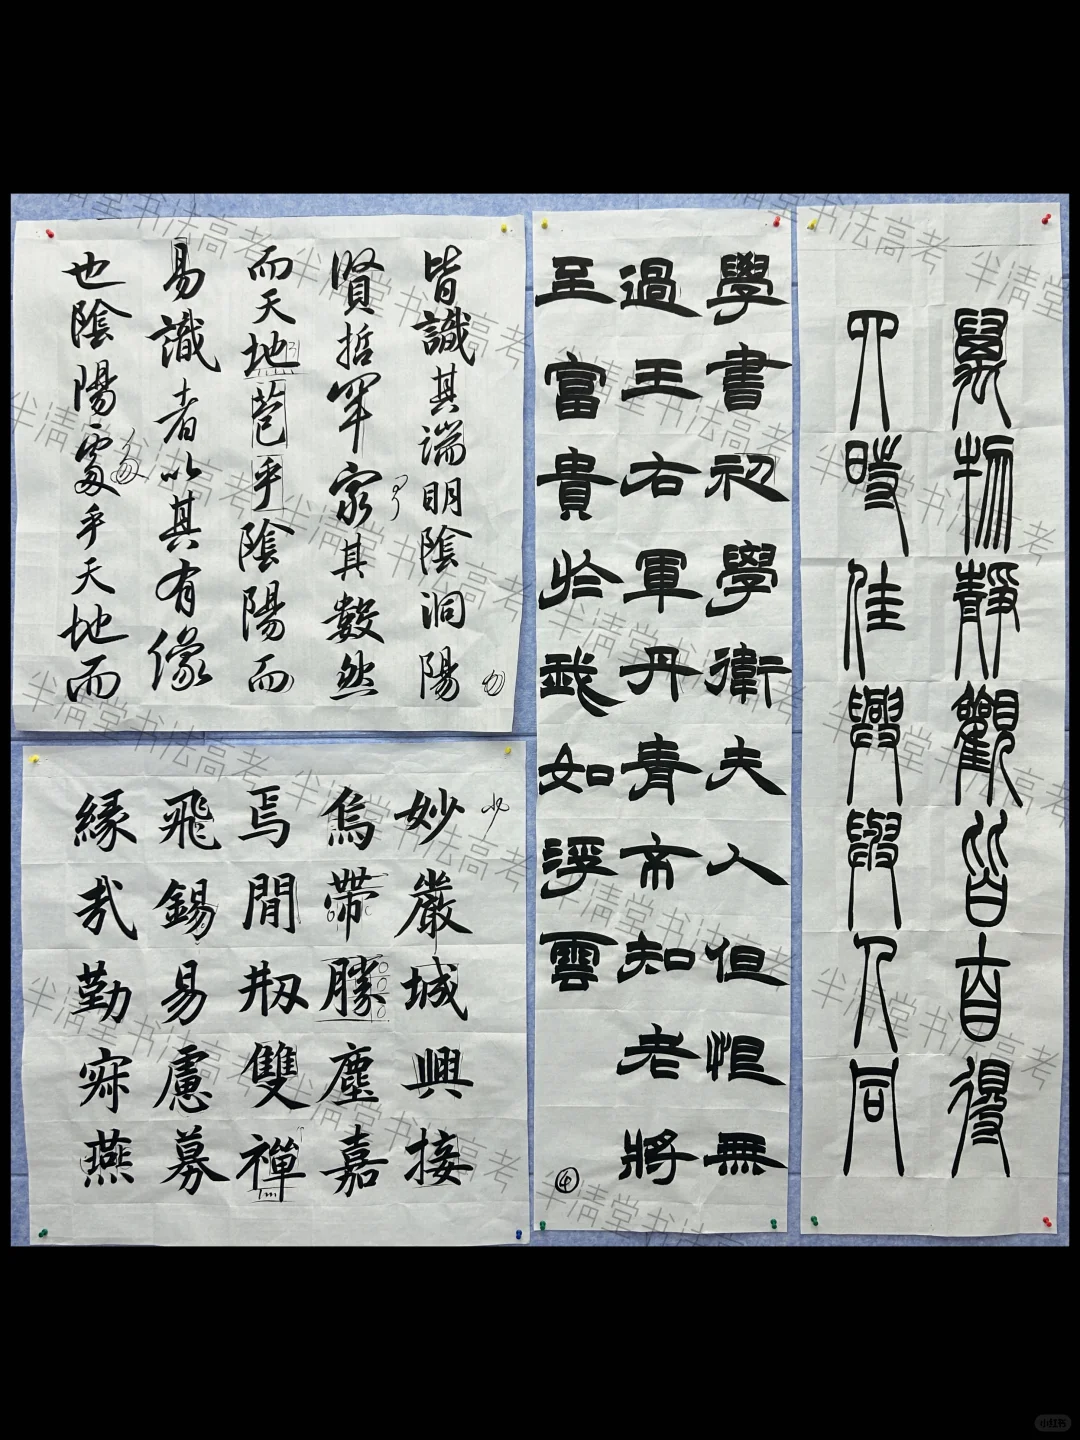 萬物靜觀皆自得
四時佳興與人同
學書初學衛夫人但恨無
過王右軍丹青不知老將
至富貴於我如浮雲
皆識其端明陰洞陽
賢哲罕窮其數然
而天地苞乎陰陽而
易識者以其有像
也陰陽處乎天地而
妙嚴城興接
烏帶勝塵嘉
焉閒剏雙禪
飛錫易慮募
緣哉勤寐燕
半清堂书法高考
小红书